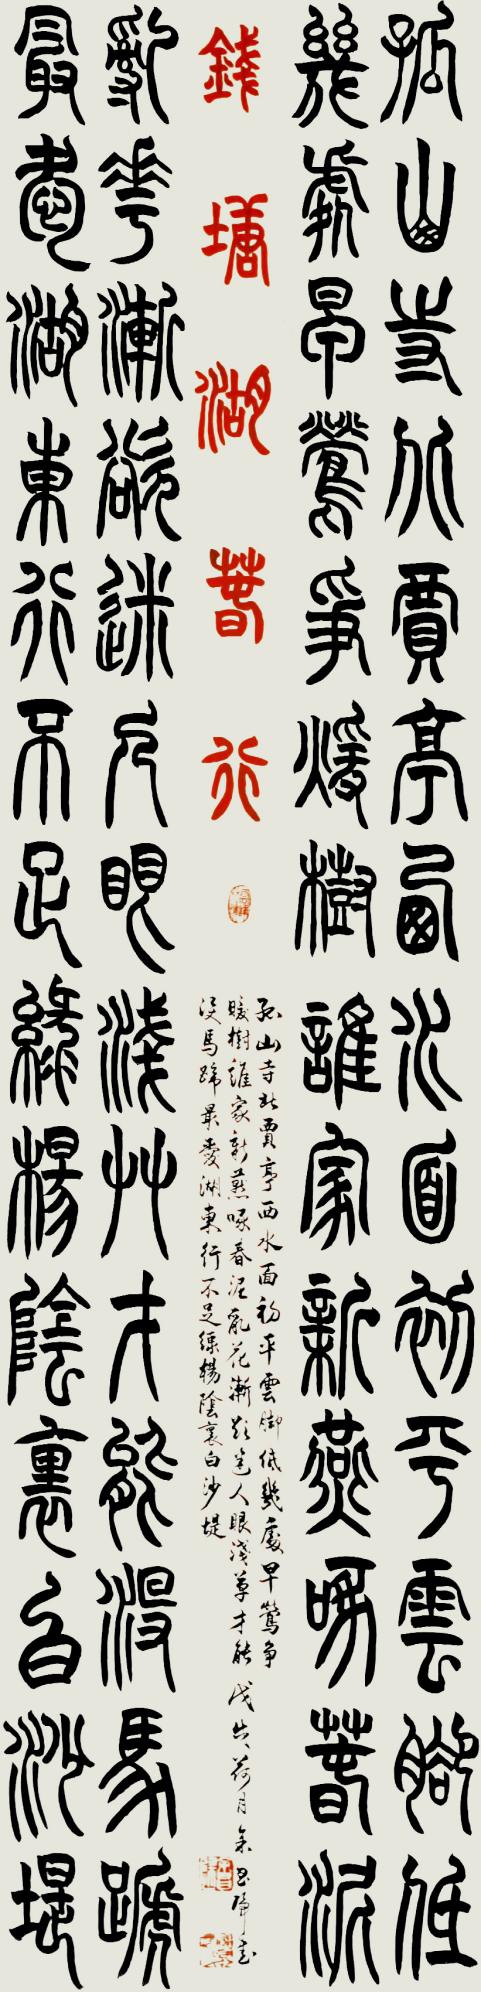 孤山寺北賈亭西水面初平雲脚低
幾處早鶯爭煖樹誰家新燕啄春泥
錢塘湖春行
孤山寺北賈亭西水面初平雲脚低幾處早鶯爭
暖樹誰家新燕啄春泥亂花漸欲迷人眼淺草才能
沒馬蹄最愛湖東行不足綠楊陰裏白沙堤
戊戌荷月
亂花漸欲迷人眼淺草才能沒馬蹄
最愛湖東行不足綠楊陰裏白沙堤